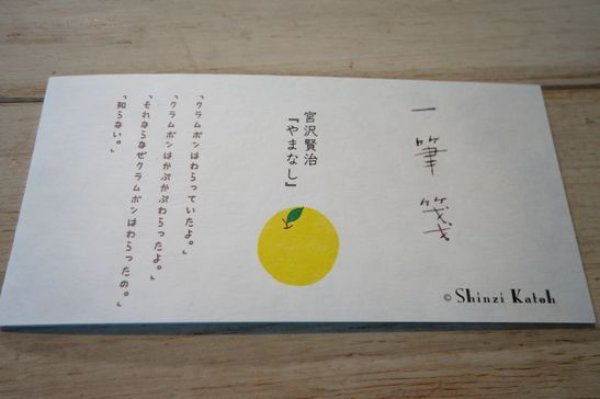 一筆箋
宮沢賢治
『やまなし』
「クラムボンはわらっていたよ。」
「クラムボンはかぷかぷわらったよ。」
「それならなぜクラムボンはわらったの。」
「知らない。」
© Shinzi Katoh